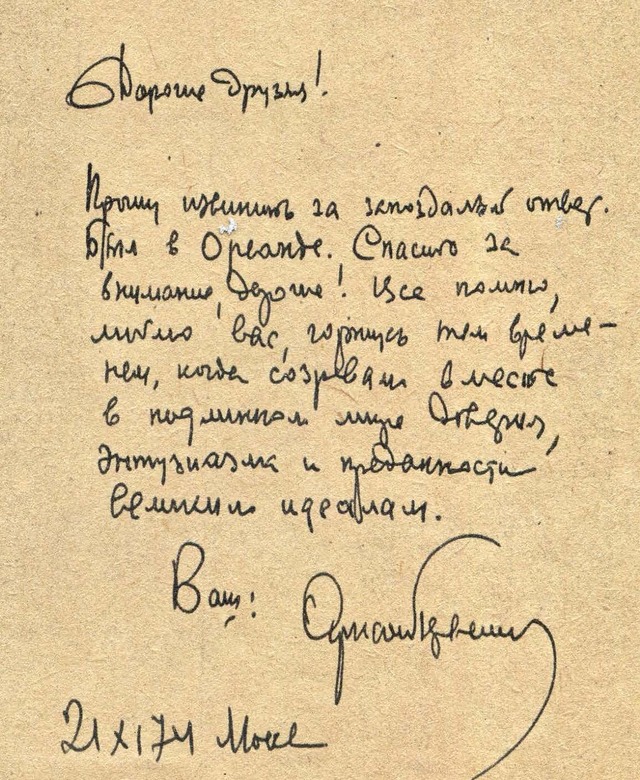 Дорогие друзья!
Прошу извинить за запоздалый ответ.
Был в Ореанде. Спасибо за
внимание, дорогие! Все помню,
люблю вас, горжусь тем време-
нем, когда созревали вместе
в подлинном мире доверия,
энтузиазма и преданности
великим идеалам.
Ваш:
21 X 174 Москва